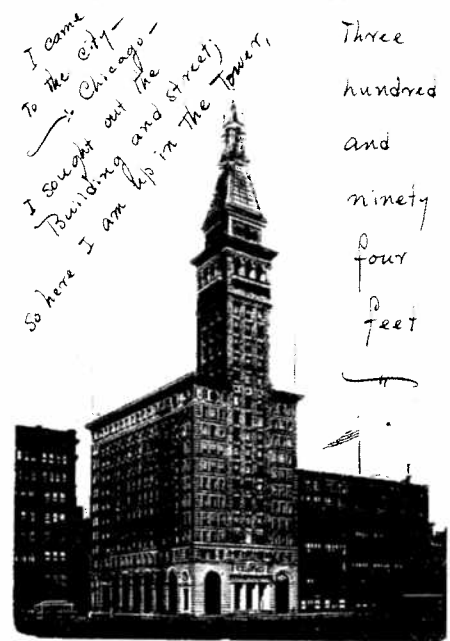 I came
To the City—
Chicago—
I sought out the
Building and street;
So here I am up in The Tower,
Three
hundred
and
ninety
four
feet